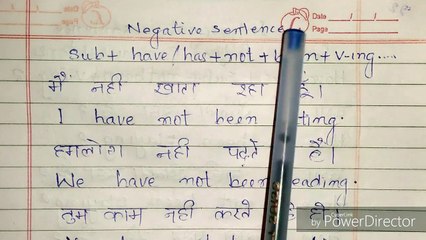 Negative sentence
Date
Page
Sub+ have/has+not+been+V-ing....
मैं नही खाता रहा हूँ।
I have not been
हमलोग नही पढ़ते हैं।
We have not been reading.
तुम काम नही करते हो
by PowerDirector